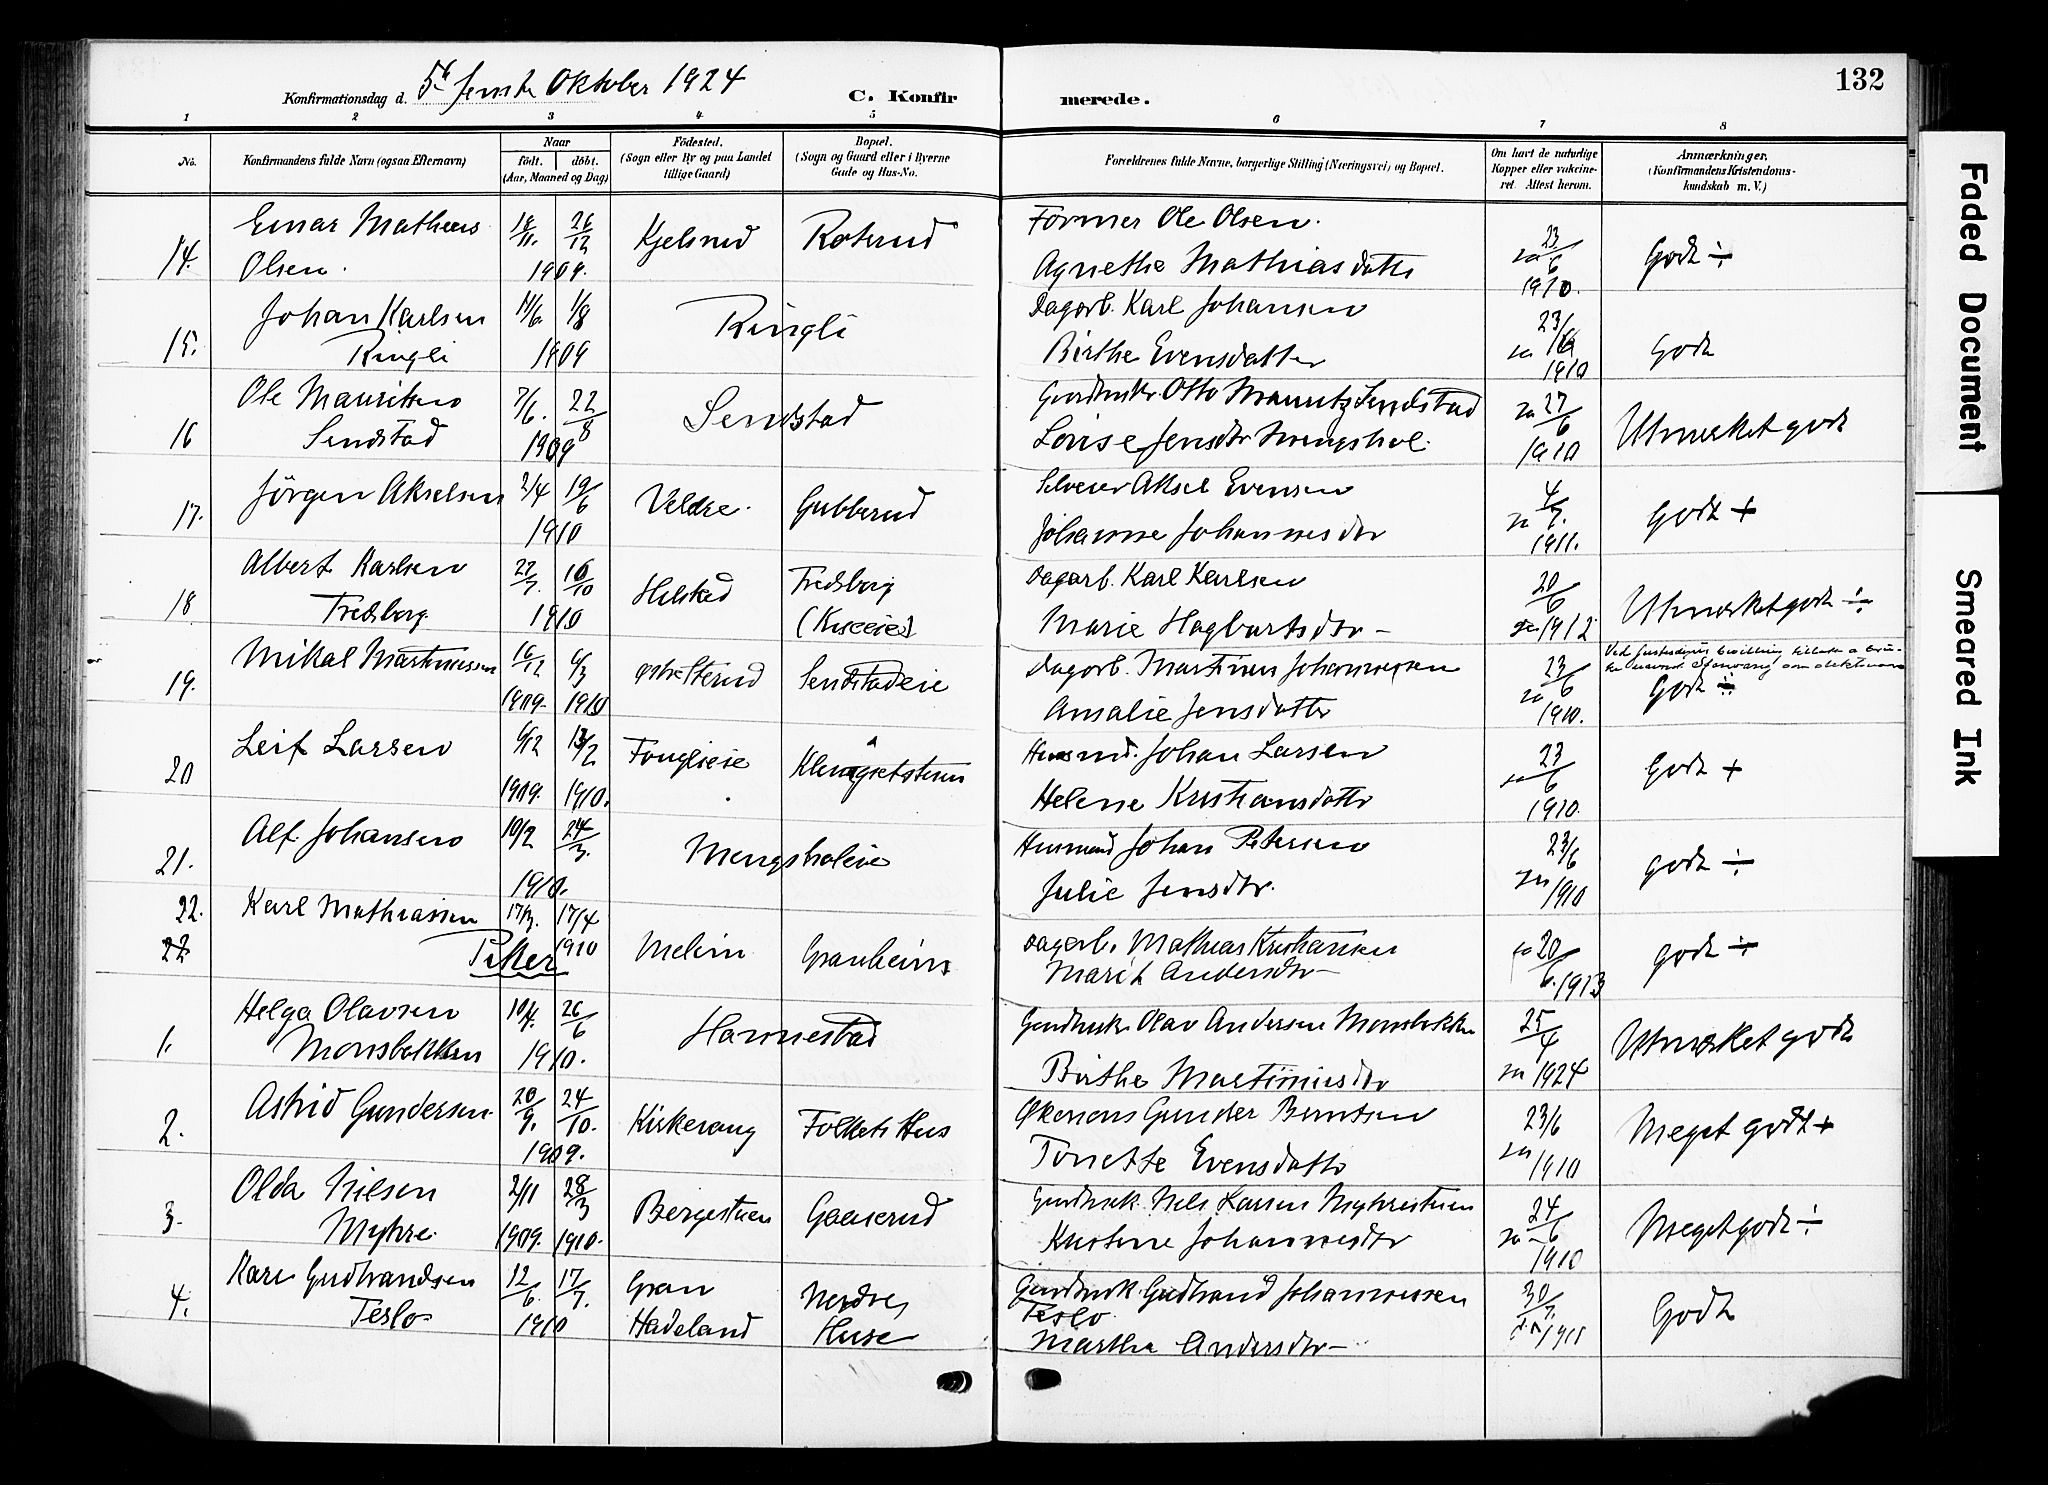 Konfirmationsdag d. 5te femte Oktober 1924
C. Konfirmerede.
132
1 2 3 4 5 6 7 8
No.
Konfirmandens fulde Navn (ogsaa Efternavn)
Naar
født. døbt.
(Aar, Maaned og Dag)
Fødested.
(Sogn eller By og paa Landet
tillige Gaard)
Bopæl.
(Sogn og Gaard eller i Byerne
Gade og Hus-No.
Forældrenes fulde Navne, borgerlige Stilling (Næringsvei) og Bopæl.
Om havt de naturlige
Kopper eller vakcine-
ret. Attest herom.
Anmærkninger,
(Konfirmandens Kristendoms-
kundskab m. V.)
14. Einar Matheus 18/11. 26/12 Kjelsrud Roterud Former Ole Olsen. 23/6 Godt ÷
Olsen. 1909. Agnethe Mathiasdatter 1910.
15. Johan Karlsen 14/6. 1/8 Ringli Dagarb. Karl Johansen 23/6 Godt
Ringli 1909 Birthe Evensdatter 1910
16 Ole Mauritsen 7/6. 22/8 Sendstad Gaardbruker Otto Mauritz Sendstad 27/6 Utmerket godt
Sendstad 1909 Louise Jensdtr 1910
17. Jörgen Akselsen 2/4 19/6 Veldre. Gubberud Aksel Evensen 4/7. Godt +
1910 Johanne Johannesdtr 1911.
18 Albert Karlsen 27/7. 16/10 Helstad Fredsborg Dagarb. Karl Karlsen 20/6 Utmerket godt ÷
Fredsborg. 1910 Marie Hagbartsdtr – 1912
19. Mikal Martinussen 16/12 6/3 Sendstadeie Dagarb. Martinus Johannessen 23/6 Godt ÷
1909. 1910 Amalie Jensdatter 1910.
20 Leif Larsen 6/12 13/2 Fonglieie Husmd. Johan Larsen 23/6 Godt +
1909. 1910. Helene Kristiansdatter 1910.
21. Alf Johansen 10/2 24/3. Mengsholeie Husmand Johan Petersen 23/6 godt ÷
1910. Julie Jensdtr. 1910
22. Karl Mathiassen 17/3. 17/4
22 Piker 1910 Melein Granheim Dagarb. Mathias Kristiansen 20/6. 1913 godt ÷
Marit Andersdtr –
1. Helga Olavsen 10/4. 26/6 Hannestad Gaardbruk. Olav Andersen Monsbakken 25/4 Utmerket godt
Monsbakken 1910. Birthe Martinusdtr 1924
2. Astrid Gundersen 20/9. 24/10. Kirkevang Folkets Hus Gunder Berntsen 23/6 Meget godt +
1909. Tonette Evensdatter 1910
3. Olda Nilsen 2/11 28/3 Bergestuen Gaaserud Gaardbruk. Nils Larsen Myhrestuen 24/6 Meget godt ÷
Myhre 1909. 1910. Kristine Johannesdtr 1910
4. Kari Gudbrandsen 12/6. 17/7. Gran Nordre Gaardbruk. Gudbrand Johannessen 30/7. Godt
Teslo 1910 Hadeland Huse Teslo 1911
Martha Andersdtr –
Faded Document
Smeared Ink